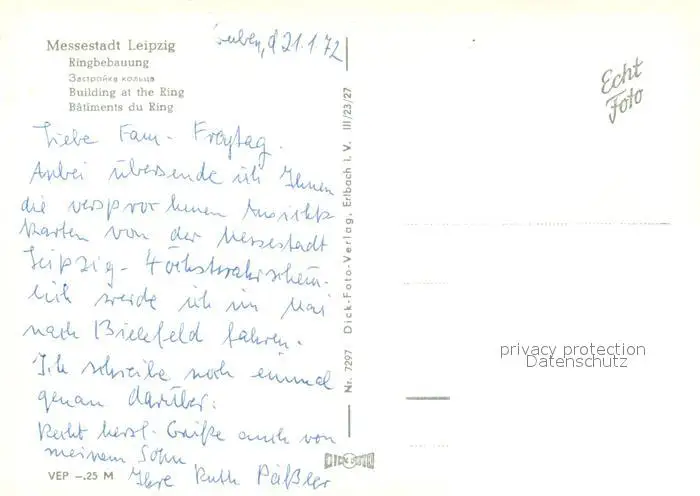 Messestadt Leipzig
Ringbebauung
Застройка кольца
Building at the Ring
Bâtiments du Ring
d 21.1.72
Liebe Fam. Freytag.
Anbei übersende ich Ihnen
die versprochenen Ansichts
karten von der Messestadt
Leipzig. Höchstwahrschein-
lich werde ich im Mai
nach Bielefeld fahren.
Ich schreibe noch einmal
genau darüber.
Recht herzl. Grüße auch von
meinem Sohn
Ihre Ruth Päßler
VEP -.25 M
Nr. 7297 Dick-Foto-Verlag, Erlbach i. V. III/23/27
DICK FOTO
Echt
Foto
privacy protection
Datenschutz